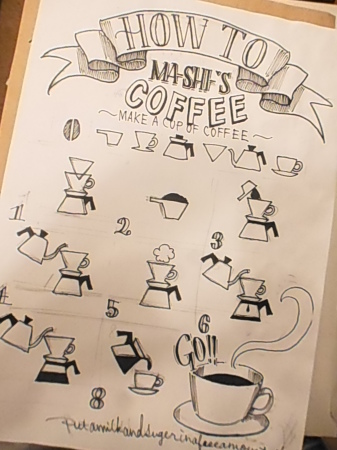 HOW TO!
MA-SHI'S
COFFEE
~MAKE A CUP OF COFFEE~
1 2 3
4 5 6
Go!!
8
Put a milk and suger in a